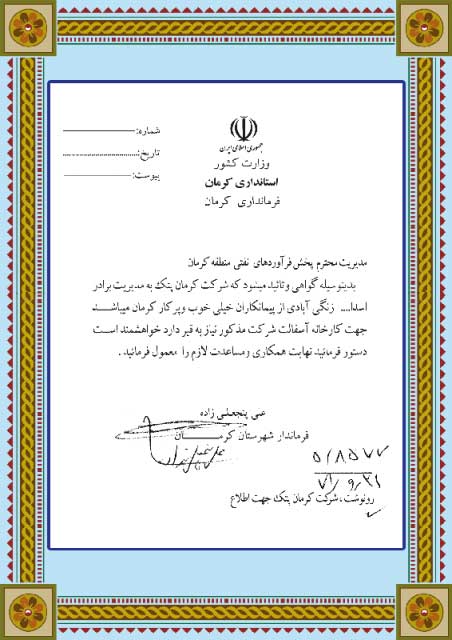 شماره:
تاریخ:
پیوست:
جمهوری اسلامی ایران
وزارت کشور
استانداری کرمان
فرمانداری کرمان
مدیریت محترم پخش فرآوردهای نفتی منطقه کرمان
بدینوسیله گواهی وتائید میشود که شرکت کرمان پتک به مدیریت برادر
اسدا.... زنگی آبادی از پیمانکاران خیلی خوب وپرکار کرمان میباشد
جهت کارخانه آسفالت شرکت مذکور نیاز به قیر دارد خواهشمند است
دستور فرمائید نهایت همکاری ومساعدت لازم را معمول فرمائید .
علی پنجعلی زاده
فرماندار شهرستان کرمان
۵/۸۵۷۷
رونوشت ، شرکت کرمان پتک جهت اطلاع